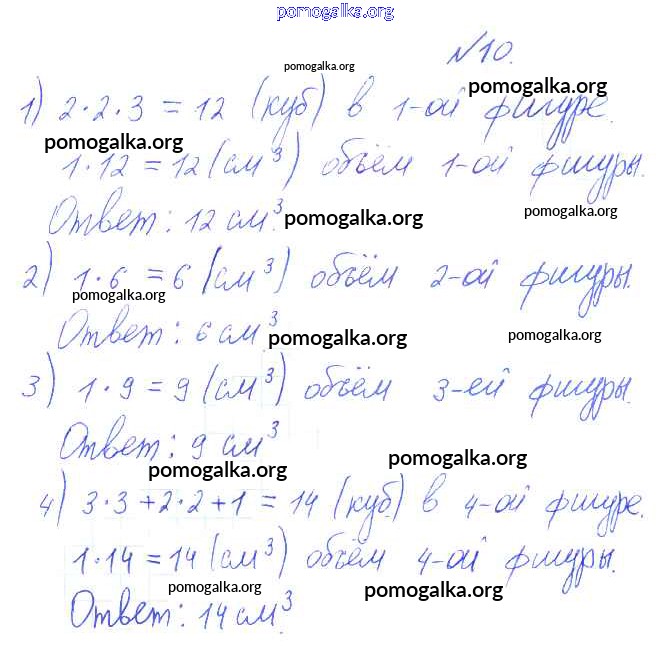 pomogalka.org
№10.
pomogalka.org
pomogalka.org
1) 2·2·3 = 12 (куб) в 1-ой фигуре.
pomogalka.org
1·12 = 12 (см³) объём 1-ой фигуры.
pomogalka.org
Ответ: 12 см³.
pomogalka.org
2) 1·6 = 6 (см³) объём 2-ой фигуры.
pomogalka.org
Ответ: 6 см³
pomogalka.org
pomogalka.org
3) 1·9 = 9 (см³) объём 3-ей фигуры.
Ответ: 9 см³
pomogalka.org
pomogalka.org
4) 3·3+2·2+1 = 14 (куб) в 4-ой фигуре.
1·14 = 14 (см³) объём 4-ой фигуры.
pomogalka.org
pomogalka.org
Ответ: 14 см³.